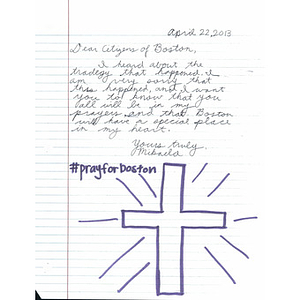 April 22, 2013
Dear Citizens of Boston,
I heard about the
tradegy that happened. I
am very sorry that
this happened, and I want
you to know that you
all will be in my
prayers and that Boston
will have a special place
in my heart.
Yours truly,
Mikaela
#prayforboston